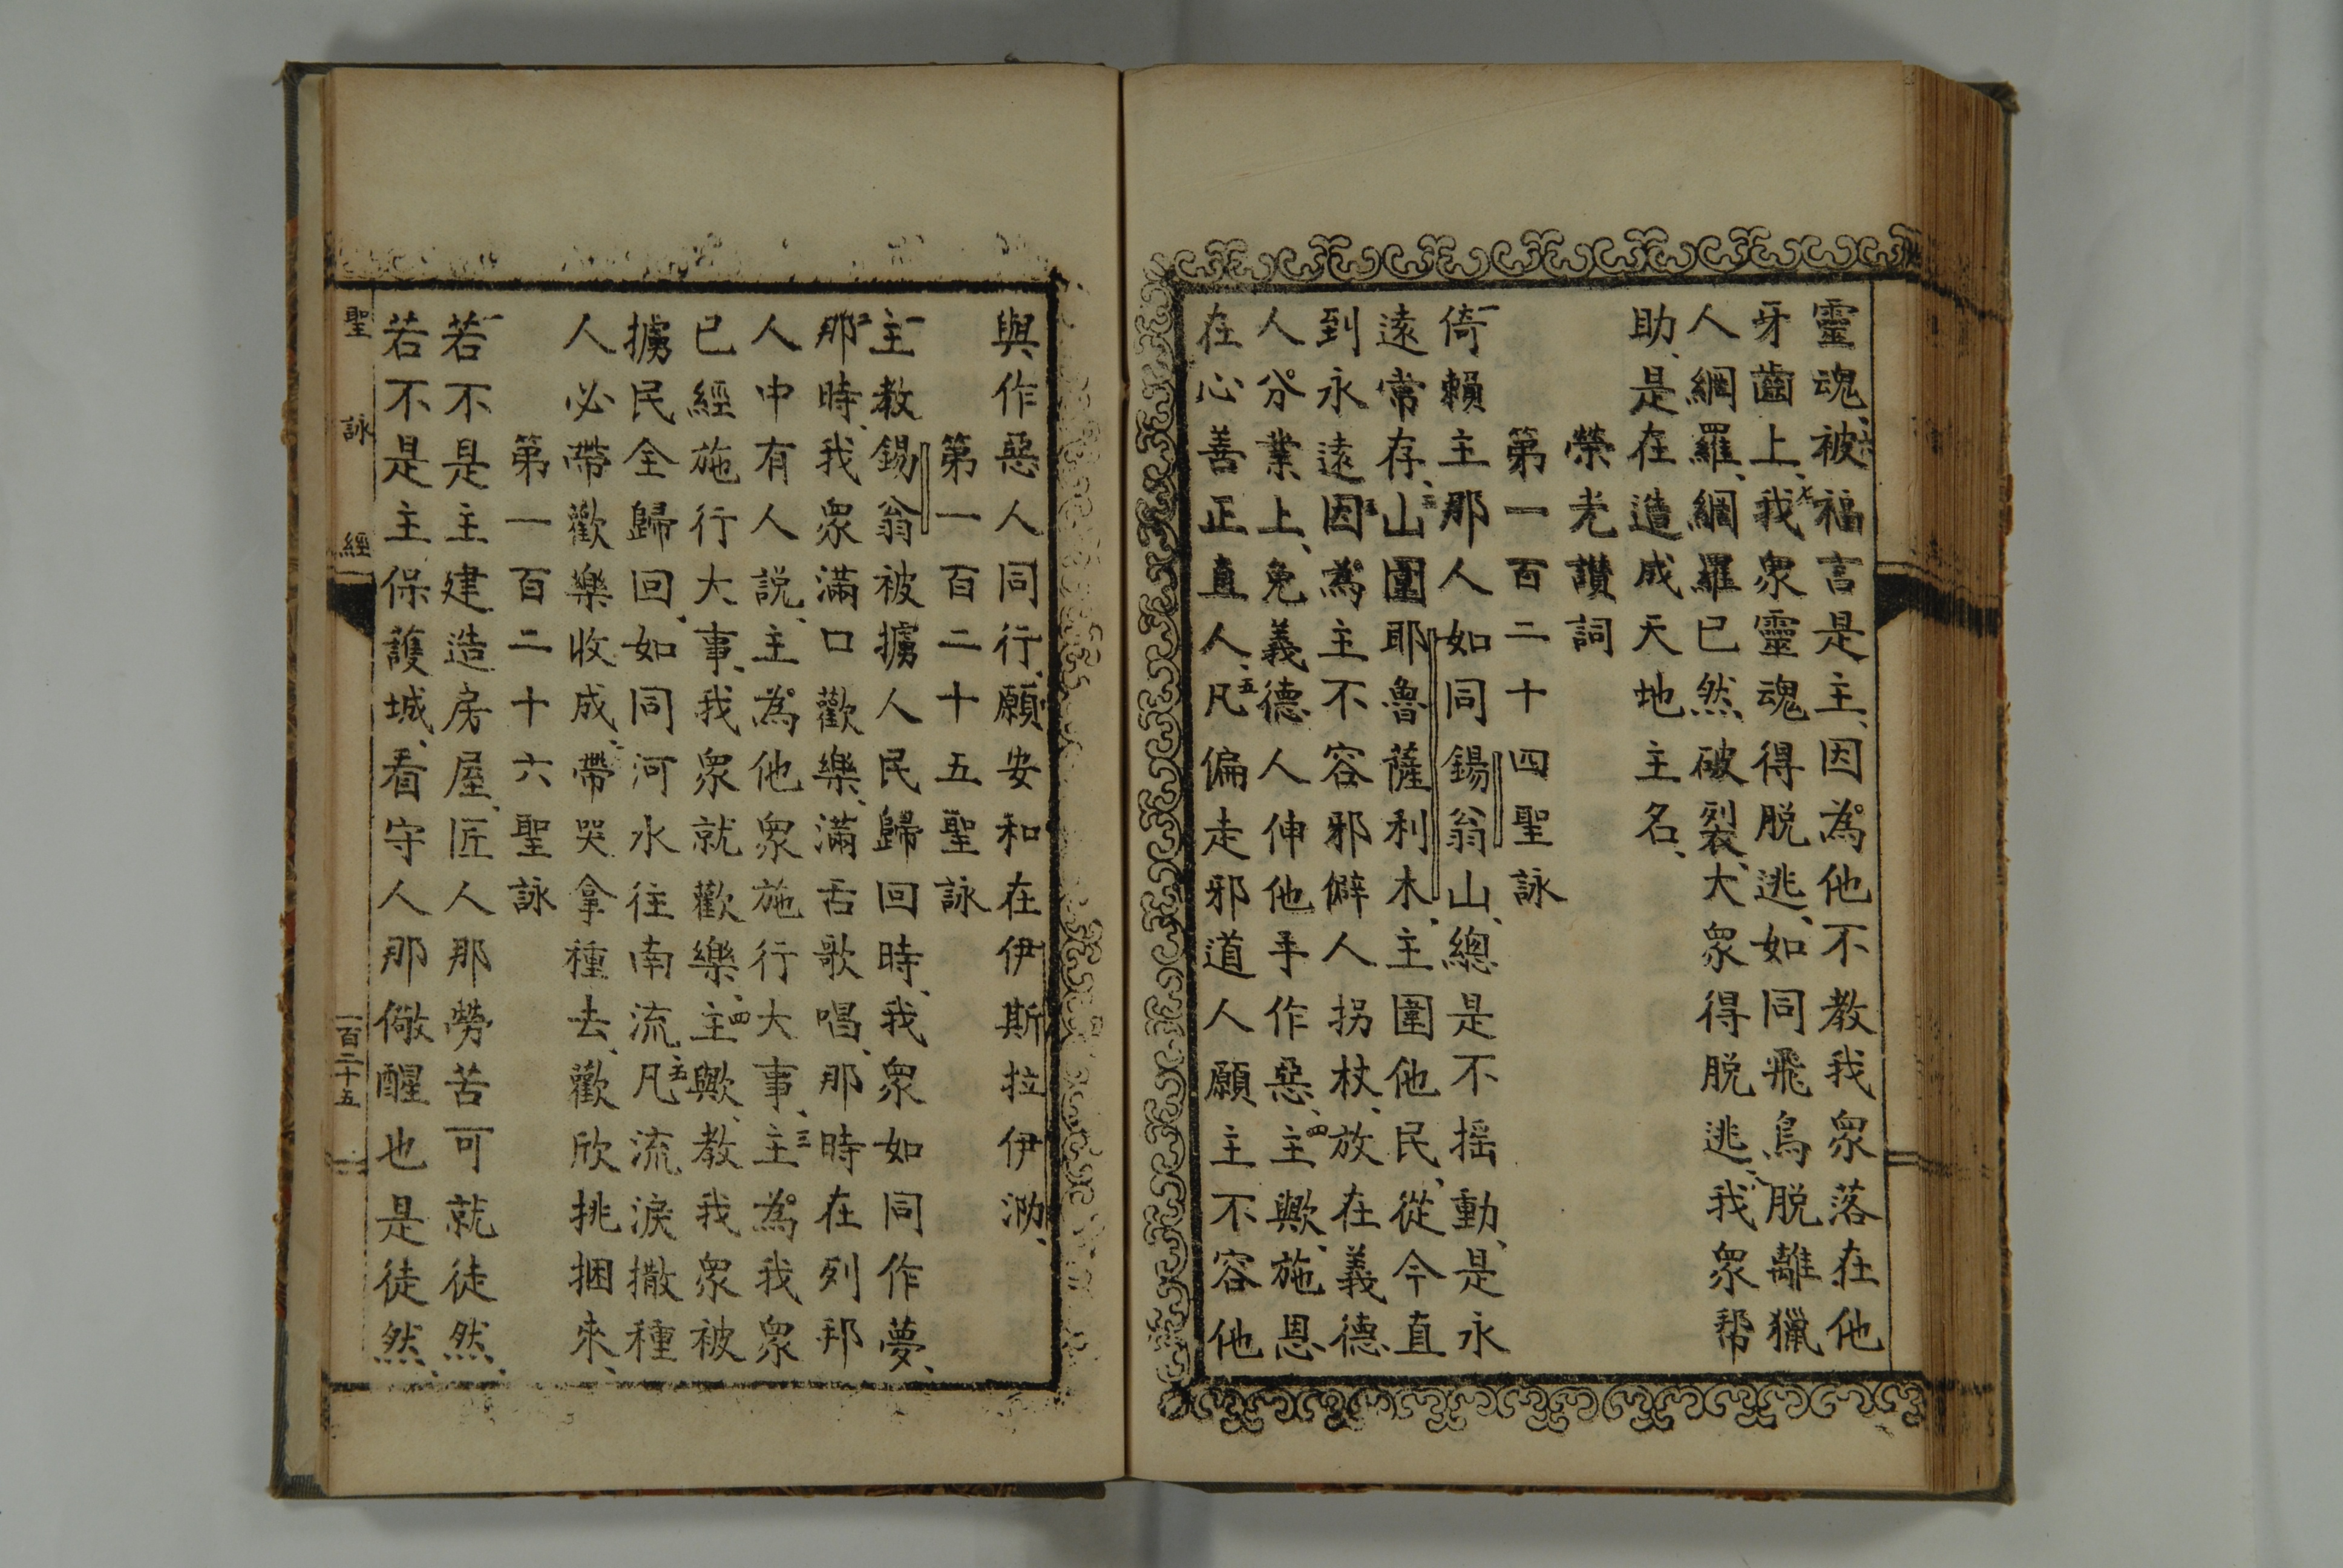 靈魂、六被福言是主、因為他不教我眾落在他
牙齒上、七我眾靈魂得脫逃、如同飛鳥脫離獵
人網羅、網羅已然破裂、大眾得脫逃、八我眾幇
助、是在造成天地主名、
榮光讚詞
第一百二十四聖詠
一倚賴主那人如同錫翁山、總是不搖動、是永
遠常存、二山圍耶魯薩利木、主圍他民、從今直
到永遠三因為主不容邪僻人拐杖、放在義德
人分業上、免義德人伸他手作惡、四主歟、施恩
在心善正直人、五凡偏走邪道人願主不容他
與作惡人同行、願安和在伊斯拉伊泐、
第一百二十五聖詠
一主教錫翁被擄人民歸回時、我眾如同作夢、
二那時、我眾滿口歡樂、滿舌歌唱、那時在列邦
人中有人說、主為他眾施行大事、三主為我眾
已經施行大事、我眾就歡樂、四主歟、教我眾被
擄民全歸回、如同河水往南流、五凡流淚撒種
人必帶歡樂收成、六帶哭拿種去、歡欣挑捆來、
第一百二十六聖詠
一若不是主建造房屋、匠人那勞苦可就徒然、
若不是主保護城、看守人那儆醒也是徒然、
聖詠經 一百二十五